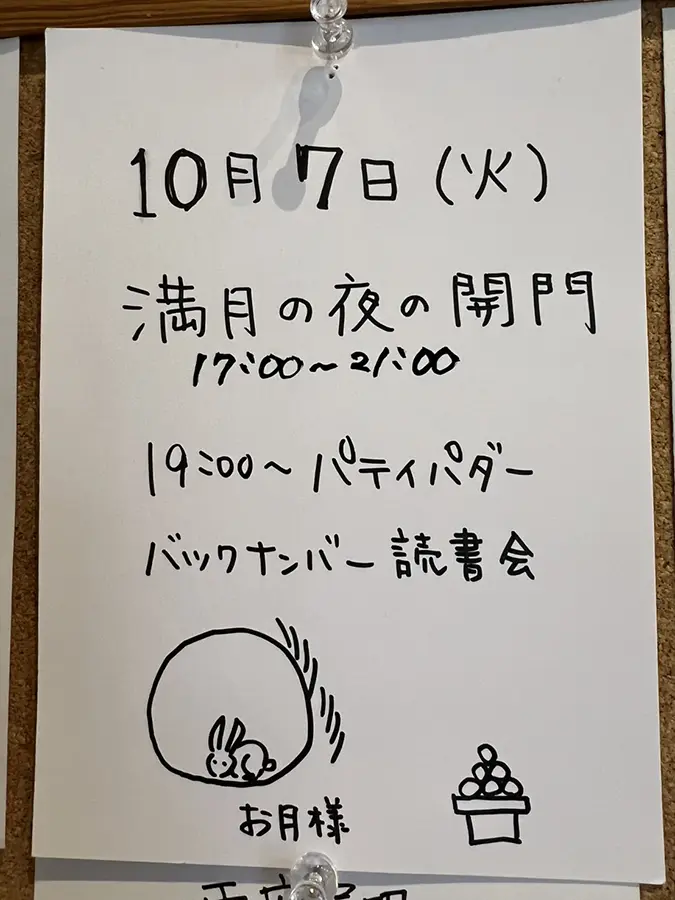 10月7日(火)
満月の夜の開門
17:00〜21:00
19:00〜パティパダー
バックナンバー読書会
お月様